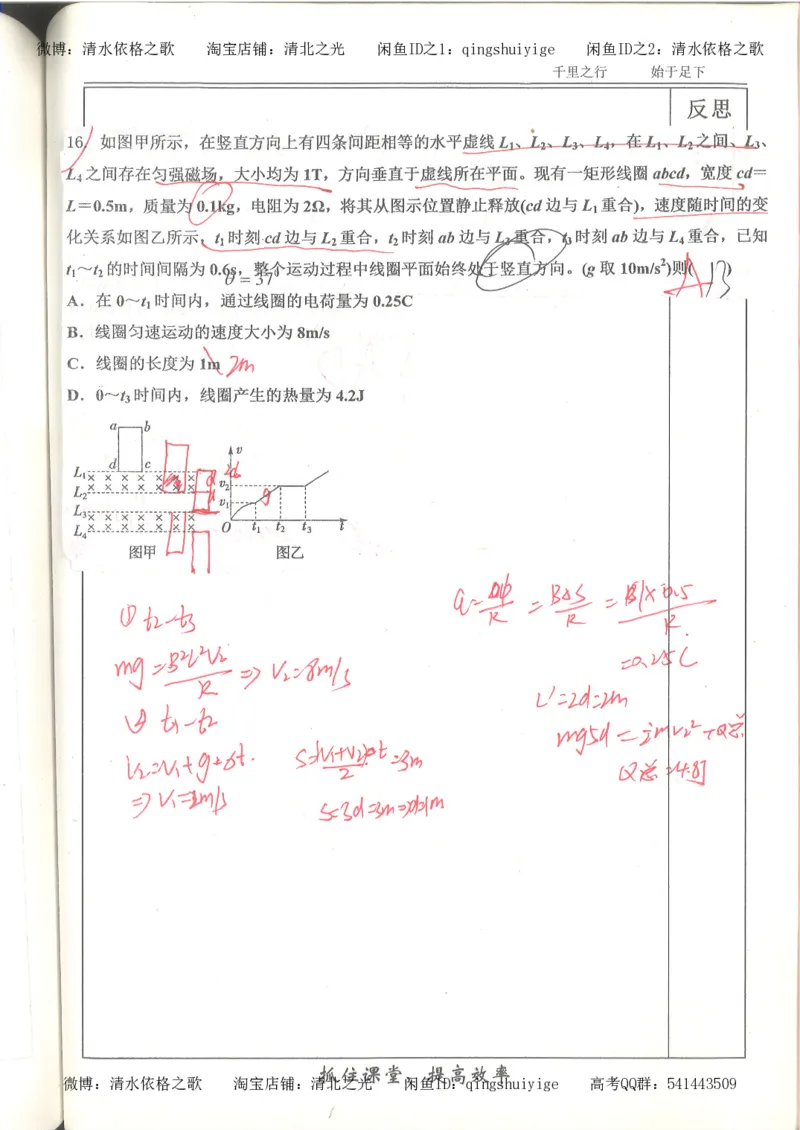 微博：清水依格之歌 淘宝店铺：清北之光 闲鱼ID之1：qingshuiyige 闲鱼ID之2：清水依格之歌
千里之行 始于足下
反思
16. 如图甲所示，在竖直方向上有四条间距相等的水平虚线 L₁、L₂、L₃、L₄，在 L₁、L₂之间、L₃、
L₄之间存在匀强磁场，大小均为 1T，方向垂直于虚线所在平面。现有一矩形线圈 abcd，宽度 cd=
L=0.5m，质量为 0.1kg，电阻为 2Ω，将其从图示位置静止释放(cd 边与 L₁重合)，速度随时间的变
化关系如图乙所示，t₁时刻 cd 边与 L₂重合，t₂时刻 ab 边与 L₃重合，t₃时刻 ab 边与 L₄重合，已知
t₁～t₂的时间间隔为 0.6s，整个运动过程中线圈平面始终处于竖直方向。(g 取 10m/s²)则( AB )
θ=37
A．在 0～t₁时间内，通过线圈的电荷量为 0.25C
B．线圈匀速运动的速度大小为 8m/s
C．线圈的长度为 1m 2m
D．0～t₃时间内，线圈产生的热量为 4.2J
a b
d c
L₁
L₂
L₃
L₄
d
d
图甲
v
2d
v₂
v₁
g
O t₁ t₂ t₃ t
图乙
① t₂-t₃
mg=B²L²V₂/R ⇒ V₂=8m/s
② t₁-t₂
V₂=V₁+g·Δt.
⇒ V₁=2m/s
S=(V₁+V₂)/2·t=3m
S=3d=3m⇒d=1m
q=Δφ/R =BΔS/R =B1×0.5/R
=0.25C
L'=2d=2m
mg5d=½mv₂²+Q总
Q总=1.8J
抓住课堂，提高效率
微博：清水依格之歌 淘宝店铺：清北之光 闲鱼ID：qingshuiyige 高考QQ群：541443509